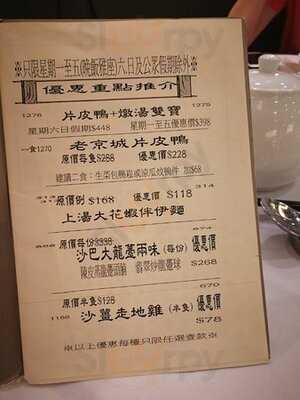 ※只限星期一至五(晚飯雅座)六日及公眾假期除外※
優惠重點推介
1276 片皮鴨+燉湯雙寶 1275
星期六日假期$448 星期一至五優惠價$398
一食1270 老京城片皮鴨
原價每隻$288 優惠價$228
建議二食:生菜包鴨崧或涼瓜炆鴨件 加$68
313 原價例$168 優惠價$118 314
上湯大花蝦伴伊麵
原價每份$398 674
沙巴大龍躉兩味(每份)優惠價
陳皮蒸龍躉頭腩 翡翠炒龍躉球 $268
670
原價半隻$128
1168 沙薑走地雞(半隻)優惠價
$78
※以上優惠每種只限任選壹款※